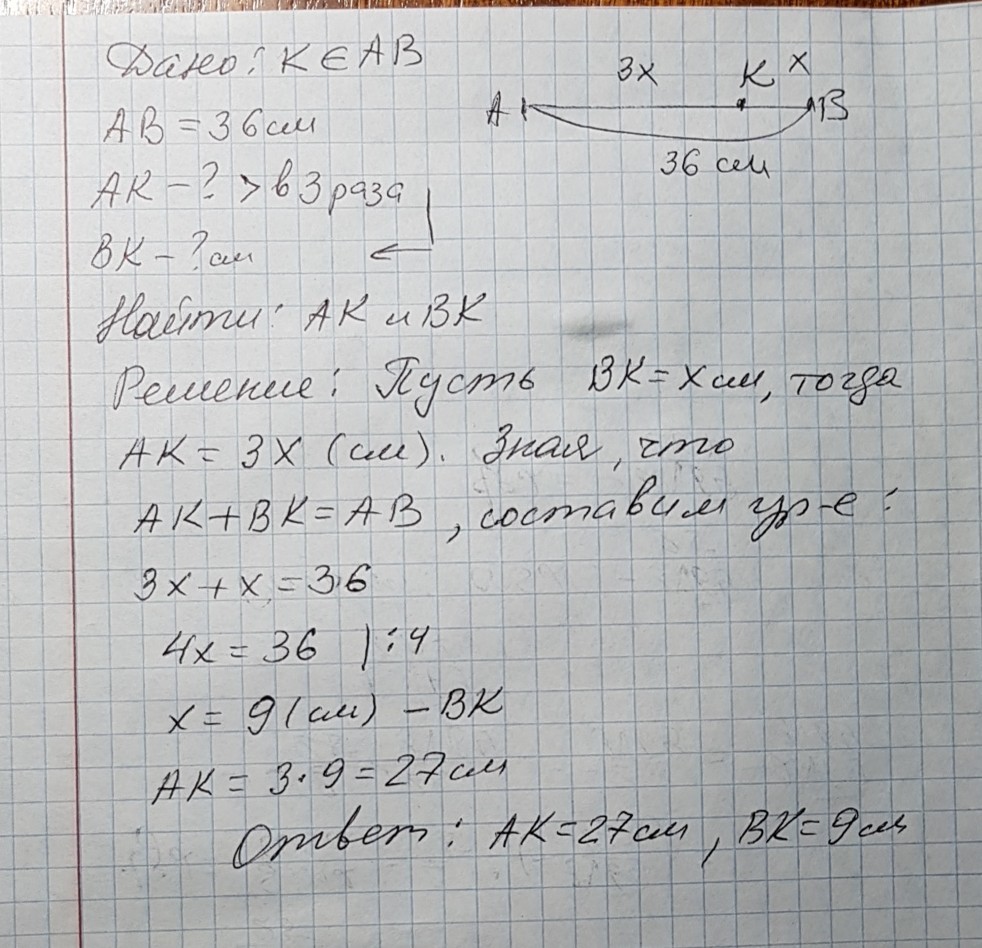 Дано: K ∈ AB
3x K x
A B
36 см
AB = 36 см
AK - ? > в 3 раза
BK - ? см
Найти: AK и BK
Решение: Пусть BK = x см, тогда
AK = 3x (см). Зная, что
AK + BK = AB, составим ур-е:
3x + x = 36
4x = 36 | : 4
x = 9 (см) - BK
AK = 3 · 9 = 27 см
Ответ: AK = 27 см, BK = 9 см